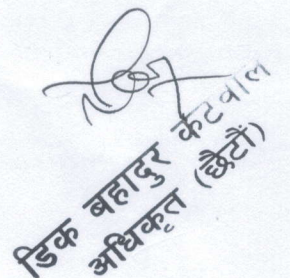 डिक बहादुर कटवाल
अधिकृत (छैटौं)